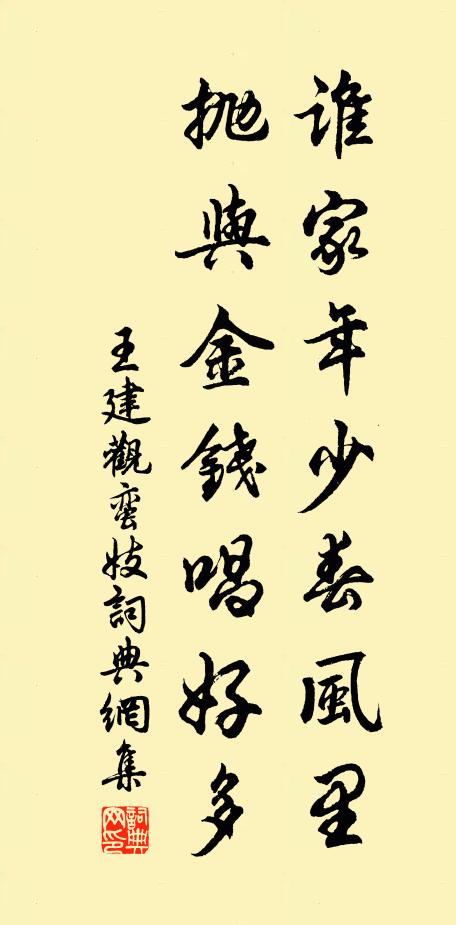 誰家年少春風里
拋與金錢唱好多
王建觀蠻妓詞典網集
詞典网印